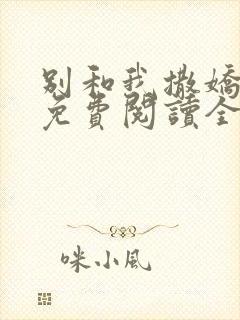 别和我撒嬌
免費閱讀全
咪小風